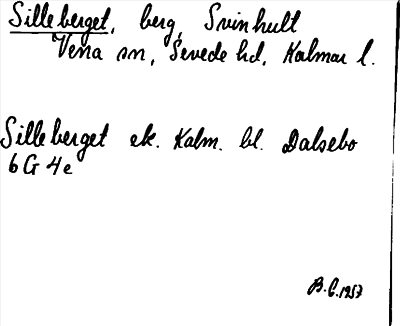 Silleberget, berg, Svinhult
Vena sn, Sevede hd, Kalmar l.
Silleberget ek. Kalm. bl. Dalsebo
6G 4e
B.G. 1957